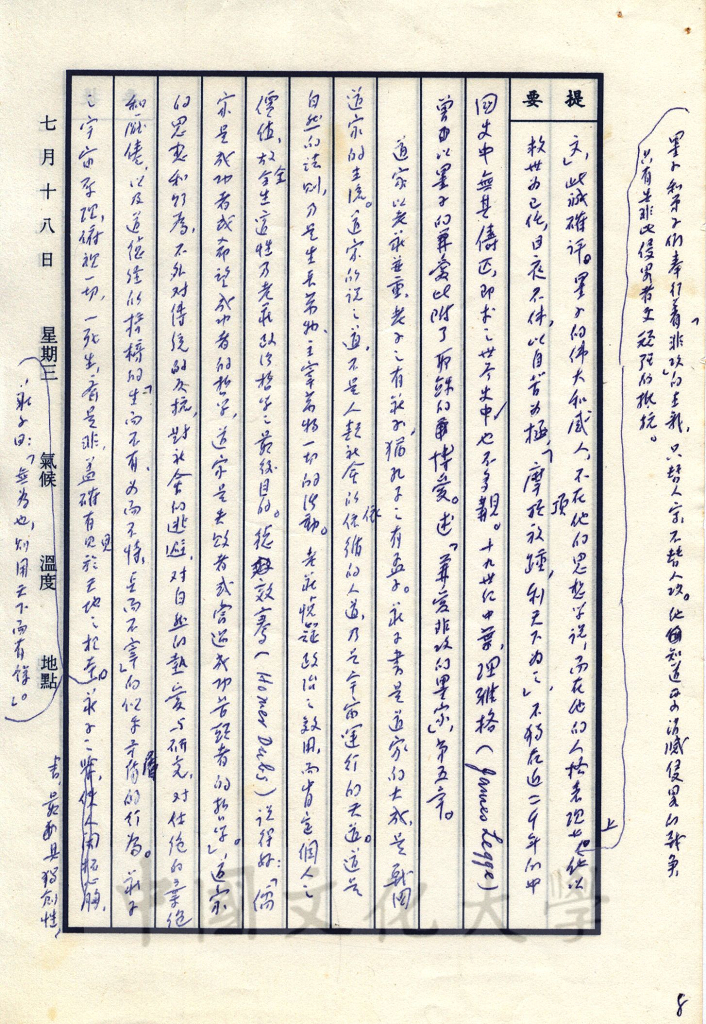 墨子和弟子們奉行着「非攻」的主義，只替人守，不替人攻。他知道要消滅侵略的戰爭
只有是非此侵略者更頑强的抵抗。
提要
文」，此誠確評。墨子的偉大和感人，不在他的思想学說，而在他的人格表現上。他以
救世为己任，日夜不休，以自苦为極，「摩頂放踵，利天下为之」，不獨在近二千年的中
国史中無其儔匹，即求之世界史中，也不多覯。十九世纪中葉，理雅格（James Legge）
曾以墨子的兼爱比附了耶穌的博爱。述「兼爱非攻的墨家」，第五章。
道家以老莊並重，老子之有莊子，猶孔子之有孟子。莊子書是道家的大成，是戰国
道家的主流。道家所说之道，不是人类社会所依循的人道，乃是宇宙運行的天道。道是
自然的法則，乃是生長萬物，主宰萬物一切的活動。老莊懷疑政治之效用，而肯定個人之
價值，故全生適性乃老莊政治哲学之最後目的。德效騫（Homer Dubs）说得好：「儒
家是成功者或希望成功者的哲学，道家是失败者或嘗過成功苦頭者的哲学」，道家
的思想和行為，不外对傳统的反抗，對社会的逃避，对自然的熱爱与研究，对仕途的棄绝
和厭倦，以及道德经所揭櫫的「生而不有，为而不恃，長而不宰」的似乎矛盾的行為。莊子
書，最為具獨創性，
之宇宙原理，俯視一切，一死生，齊是非，蓋確有見於天地之於莊子之
莊子曰：「無為也，則用天下而有馀」。
七月十八日 星期三 氣候 溫度 地點
中國文化大學
8